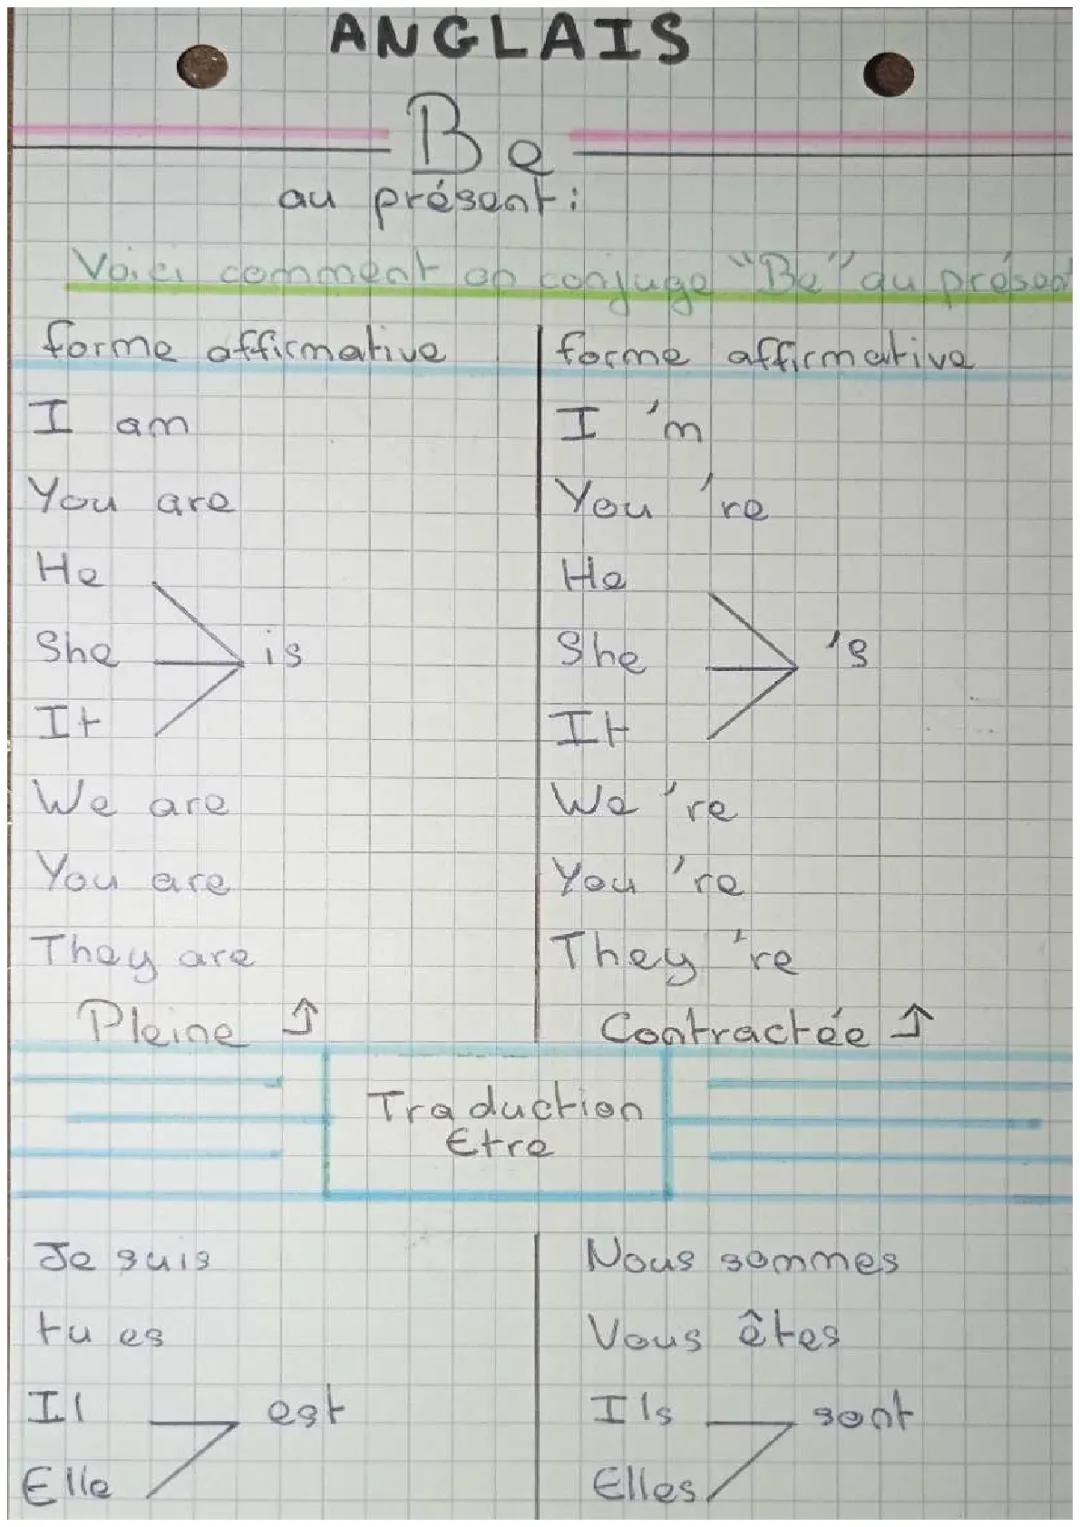 ANGLAIS
Be
au présent:
Voici comment on conjugue "Be" au présent
forme affirmative
I am
You are
He
She
It
is
We are
You are
They are
Pleine ⇑
forme affirmative
I 'm
You 're
He
She
It
's
We 're
You 're
They 're
Contractée ⇑
Traduction
Etre
Je suis
tu es
Il
Elle
est
Nous sommes
Vous êtes
Ils
Elles
sont